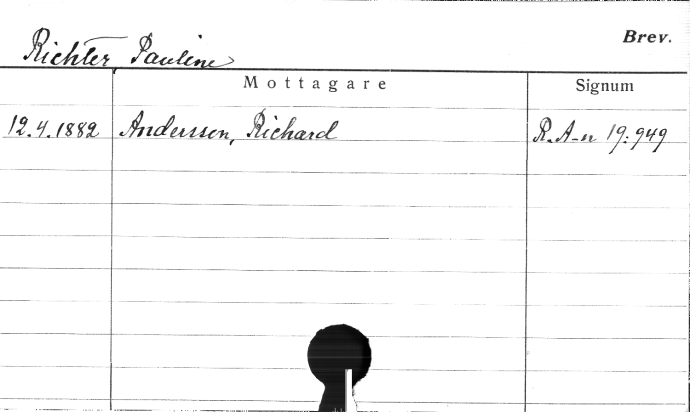 Brev.
Richter, Pauline
Mottagare Signum
12.4.1882 Anderssen, Richard R. A-n 19:949